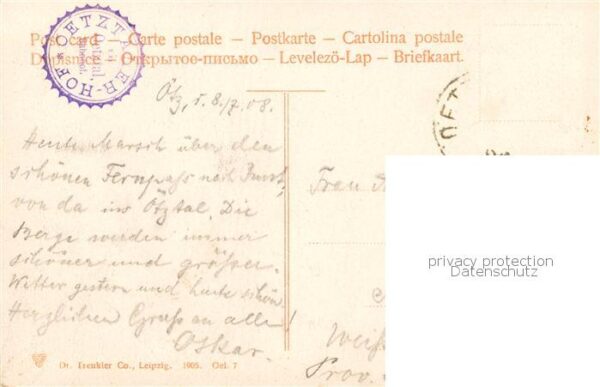 Post card – Carte postale – Postkarte – Cartolina postale
Dopisnice – Открытое-письмо – Levelezö-Lap – Briefkaart.
OETZTALER-HOF
Ötztal
Ötz, 8./7.08.
Heute Marsch über den
schönen Fernpass nach Imst,
von da ins Ötztal. Die
Berge werden immer
schöner und größer.
Wetter gestern und heute schön.
Herzlichen Gruß an alle!
Oskar.
Frau
Prov.
privacy protection
Datenschutz
Dr. Trenkler Co., Leipzig. 1905. Oet. 7